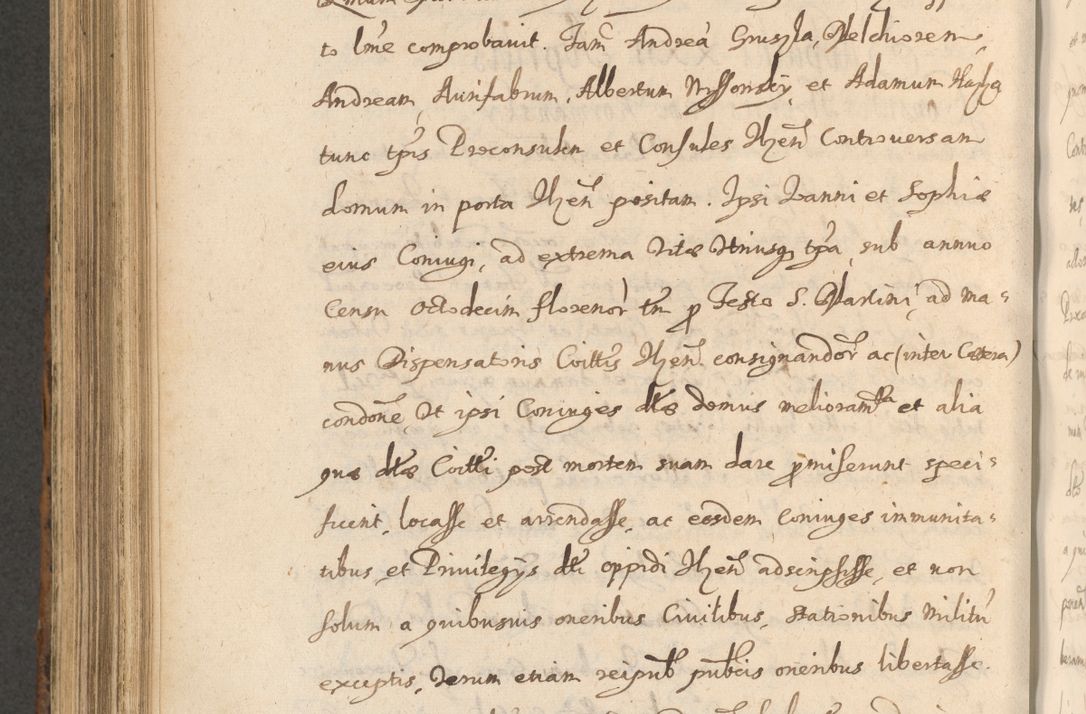 to lñe comprobavit. Iam Andreã Gruszla, Melchiorem,
Andream, Aurifabrum, Albertum et Adamum
tunc tp̃is Proconsulem et Consules Ilẑen̄ Controversam
domum in porta Ilẑen̄ positam. Ipsi Ioanni et Sophiæ
eius Coniugi, ad extrema vitæ utriusq̨ tp̃a, sub annuo
Censu octodecim florenor̃ tm̃ p Festo S. Martini, ad ma=
nus Dispensatoris Coittis Ilẑen̄ consignandor̃ ac (inter Cætera)
condone Ut ipsi Coniuges dtæ domus melioramta et alia
quæ dtæ Coitti post mortem suam dare pmiserunt speci=
ficent, locasse et arrendasse, ac eosdem Coniuges immunita=
tibus et Privilegÿs dti oppidi Ilẑen̄ adscripsisse, et non
solum a quibusvis oneribus Civilibus, stationibus Militũ
exceptis, verum etiam reipub̃ pub̃cis oneribus libertasse.